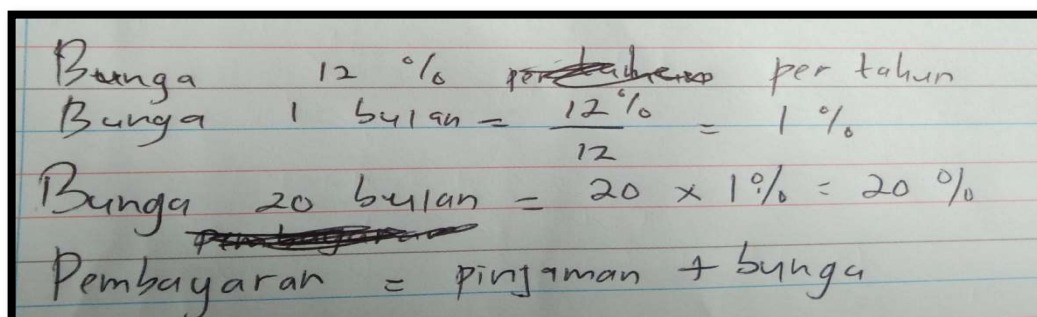 Bunga 12 % per tahun
Bunga 1 bulan = 12% / 12 = 1 %
Bunga 20 bulan = 20 x 1% = 20 %
Pembayaran = pinjaman + bunga